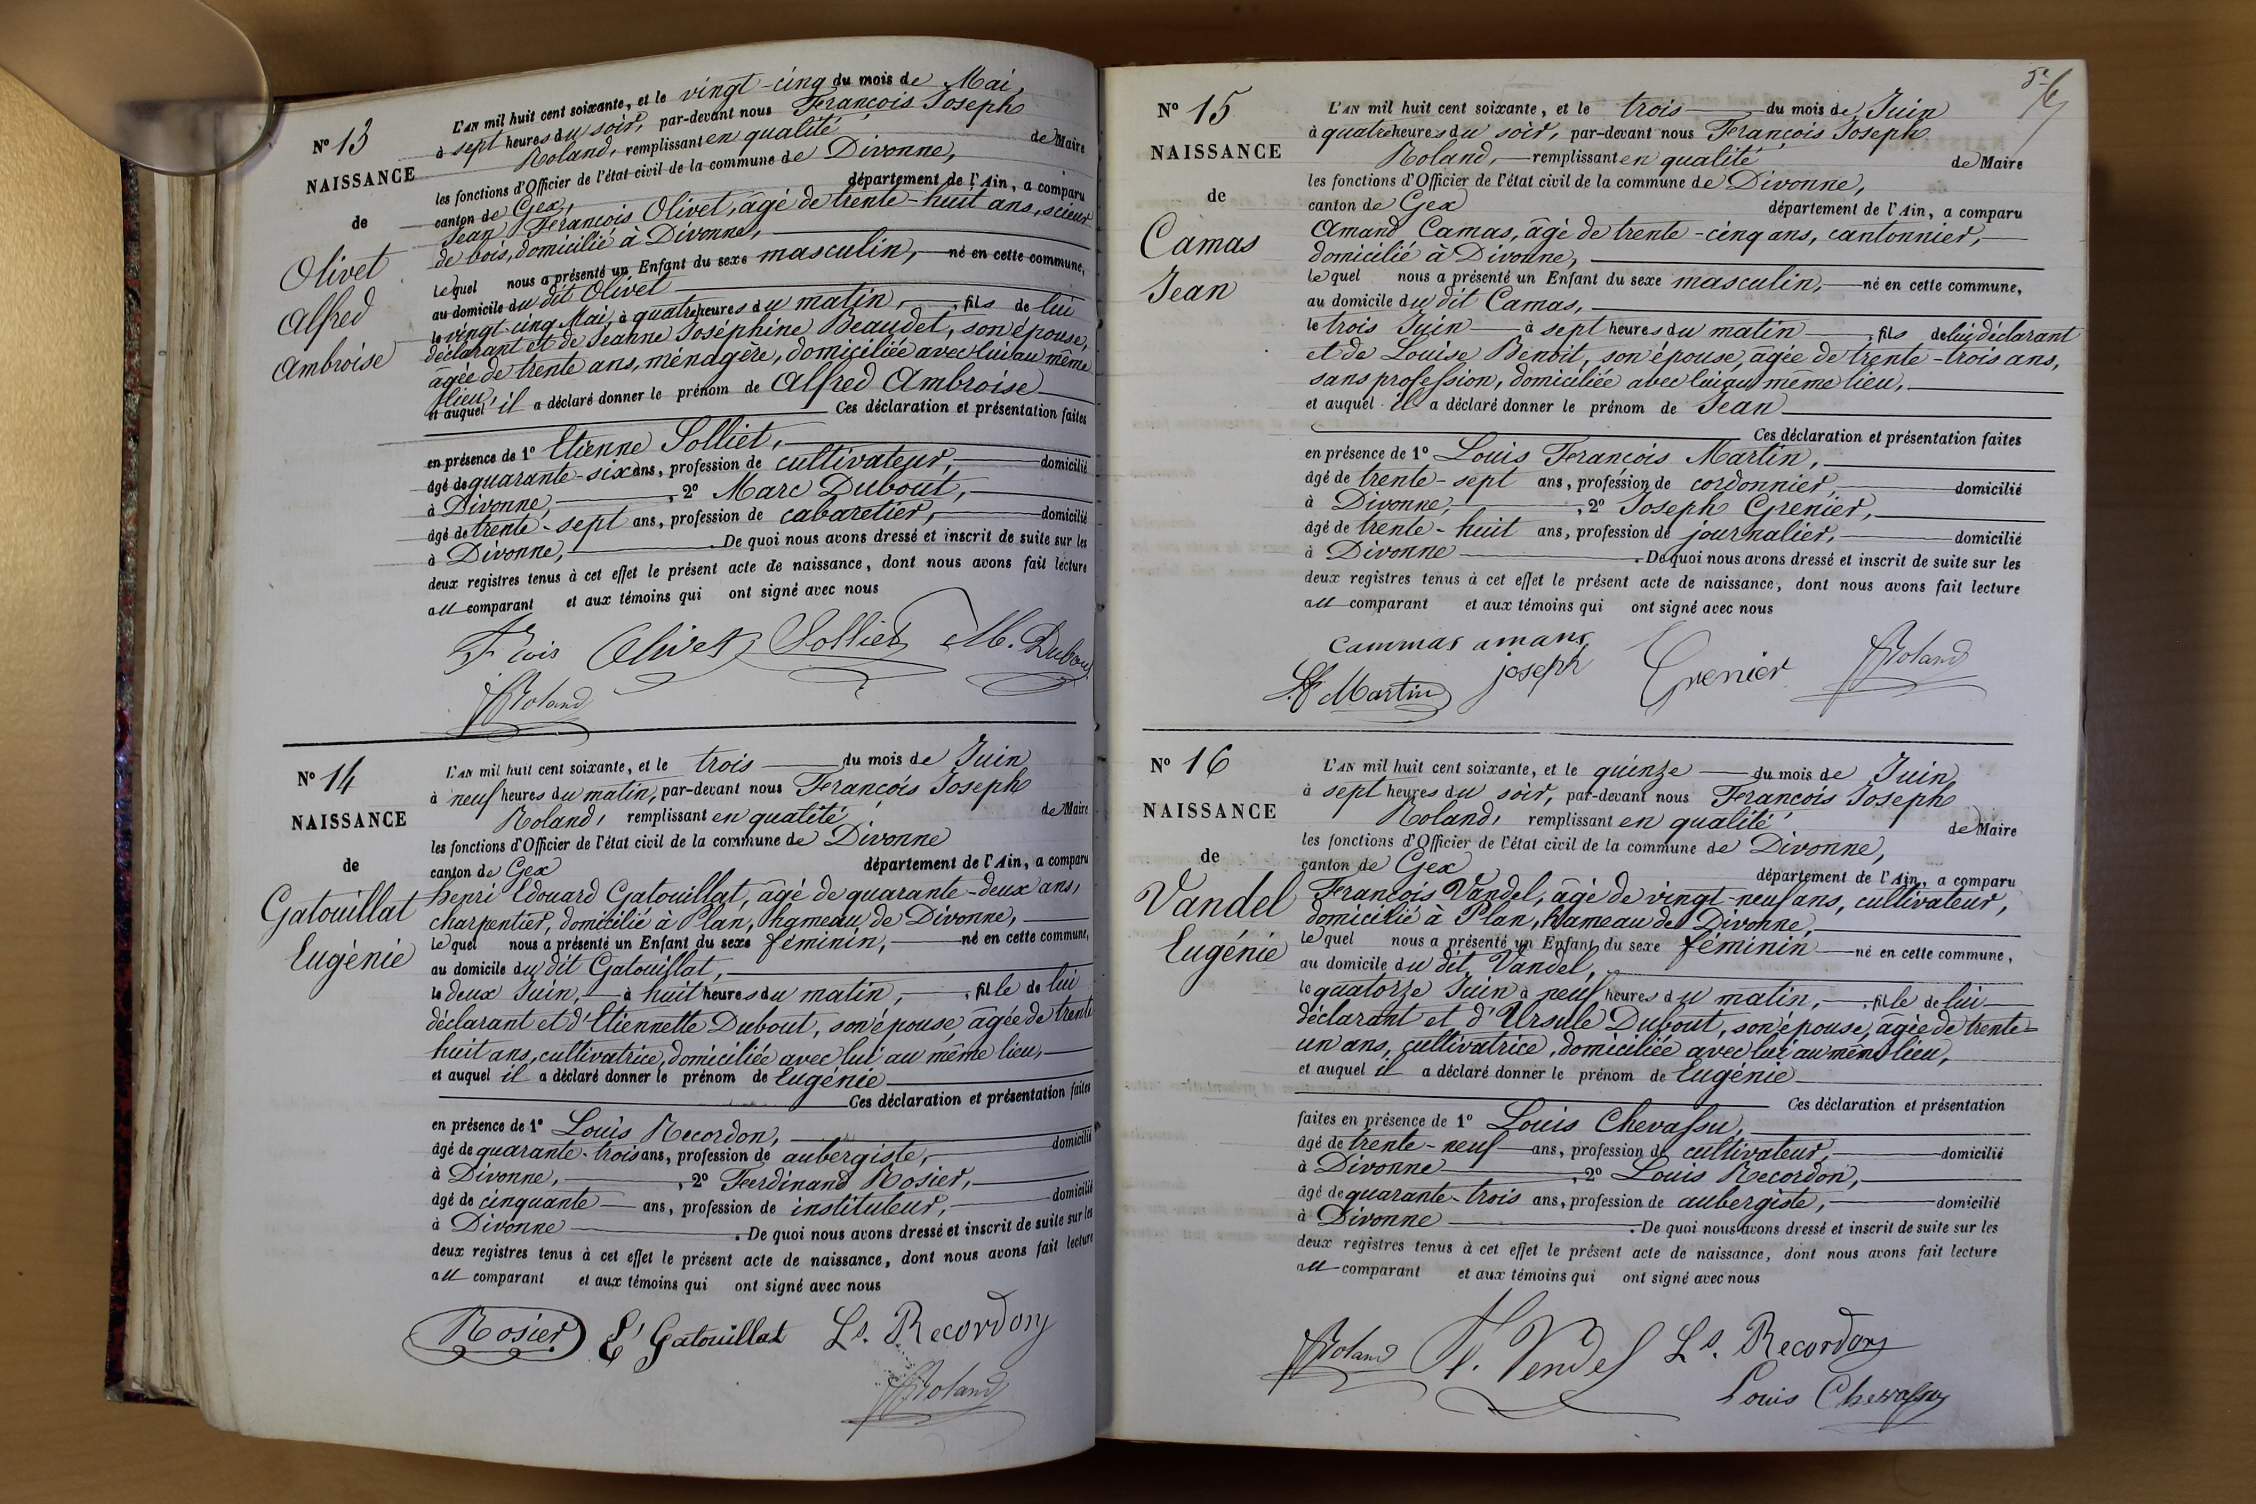 N° 13
NAISSANCE
de
Olivet
Alfred
Ambroise
L'AN mil huit cent soixante, et le vingt-cinq du mois de Mai,
à sept heures du soir, par-devant nous François Joseph
Roland, remplissant en qualité de Maire
les fonctions d'Officier de l'état civil de la commune de Divonne,
canton de Gex, département de l'Ain, a comparu
Jean François Olivet, âgé de trente-huit ans, scieur
de bois, domicilié à Divonne,
lequel nous a présenté un Enfant du sexe masculin, né en cette commune,
au domicile du dit Olivet
le vingt-cinq Mai, à quatre heures du matin, fils de lui
déclarant et de Jeanne Joséphine Beaudet, son épouse,
âgée de trente ans, ménagère, domiciliée avec lui au même
lieu,
et auquel il a déclaré donner le prénom de Alfred Ambroise
Ces déclaration et présentation faites
en présence de 1° Etienne Solliet,
âgé de quarante-six ans, profession de cultivateur, domicilié
à Divonne, 2° Marc Dubout,
âgé de trente-sept ans, profession de cabaretier, domicilié
à Divonne, . De quoi nous avons dressé et inscrit de suite sur les
deux registres tenus à cet effet le présent acte de naissance, dont nous avons fait lecture
au comparant et aux témoins qui ont signé avec nous
Fcois Olivet Solliet M. Dubout
Roland
N° 14
NAISSANCE
de
Gatouillat
Eugénie
L'AN mil huit cent soixante, et le trois du mois de Juin
à neuf heures du matin, par-devant nous François Joseph
Roland, remplissant en qualité de Maire
les fonctions d'Officier de l'état civil de la commune de Divonne
canton de Gex département de l'Ain, a comparu
henri Edouard Gatouillat, âgé de quarante-deux ans,
charpentier, domicilié à Plan, hameau de Divonne,
lequel nous a présenté un Enfant du sexe féminin, né en cette commune,
au domicile du dit Gatouillat,
le deux Juin, à huit heures du matin, fille de lui
déclarant et d'Etiennette Dubout, son épouse, âgée de trente
huit ans, cultivatrice, domiciliée avec lui au même lieu,
et auquel il a déclaré donner le prénom de Eugénie
Ces déclaration et présentation faites
en présence de 1° Louis Recordon,
âgé de quarante-trois ans, profession de aubergiste, domicilié
à Divonne, 2° Ferdinand Rosier,
âgé de cinquante ans, profession de instituteur, domicilié
à Divonne . De quoi nous avons dressé et inscrit de suite sur les
deux registres tenus à cet effet le présent acte de naissance, dont nous avons fait lecture
au comparant et aux témoins qui ont signé avec nous
Rosier E' Gatouillat Ls. Recordon
Roland
N° 15
NAISSANCE
de
Camas
Jean
L'AN mil huit cent soixante, et le trois du mois de Juin
à quatre heures du soir, par-devant nous François Joseph
Roland, remplissant en qualité de Maire
les fonctions d'Officier de l'état civil de la commune de Divonne,
canton de Gex département de l'Ain, a comparu
Amand Camas, âgé de trente-cinq ans, cantonnier,
domicilié à Divonne,
lequel nous a présenté un Enfant du sexe masculin, né en cette commune,
au domicile du dit Camas,
le trois Juin à sept heures du matin fils de lui déclarant
et de Louise Benoit, son épouse, âgée de trente-trois ans,
sans profession, domiciliée avec lui au même lieu,
et auquel il a déclaré donner le prénom de Jean
Ces déclaration et présentation faites
en présence de 1° Louis François Martin,
âgé de trente-sept ans, profession de cordonnier, domicilié
à Divonne, 2° Joseph Grenier,
âgé de trente-huit ans, profession de journalier, domicilié
à Divonne . De quoi nous avons dressé et inscrit de suite sur les
deux registres tenus à cet effet le présent acte de naissance, dont nous avons fait lecture
au comparant et aux témoins qui ont signé avec nous
cammas amans
Lf Martin joseph Grenier Roland
N° 16
NAISSANCE
de
Vandel
Eugénie
L'AN mil huit cent soixante, et le quinze du mois de Juin,
à sept heures du soir, par-devant nous François Joseph
Roland, remplissant en qualité de Maire
les fonctions d'Officier de l'état civil de la commune de Divonne,
canton de Gex département de l'Ain, a comparu
François Vandel, âgé de vingt-neuf ans, cultivateur,
domicilié à Plan, hameau de Divonne,
lequel nous a présenté un Enfant du sexe féminin né en cette commune,
au domicile du dit Vandel,
le quatorze Juin à neuf heures du matin, fille de lui
déclarant et d'Ursule Dubout, son épouse, âgée de trente-
un ans, cultivatrice, domiciliée avec lui au même lieu,
et auquel il a déclaré donner le prénom de Eugénie
Ces déclaration et présentation
faites en présence de 1° Louis Chevassu,
âgé de trente-neuf ans, profession de cultivateur, domicilié
à Divonne 2° Louis Recordon,
âgé de quarante-trois ans, profession de aubergiste, domicilié
à Divonne . De quoi nous avons dressé et inscrit de suite sur les
deux registres tenus à cet effet le présent acte de naissance, dont nous avons fait lecture
au comparant et aux témoins qui ont signé avec nous
Roland f. Vendel Ls. Recordon
Louis Chevassu